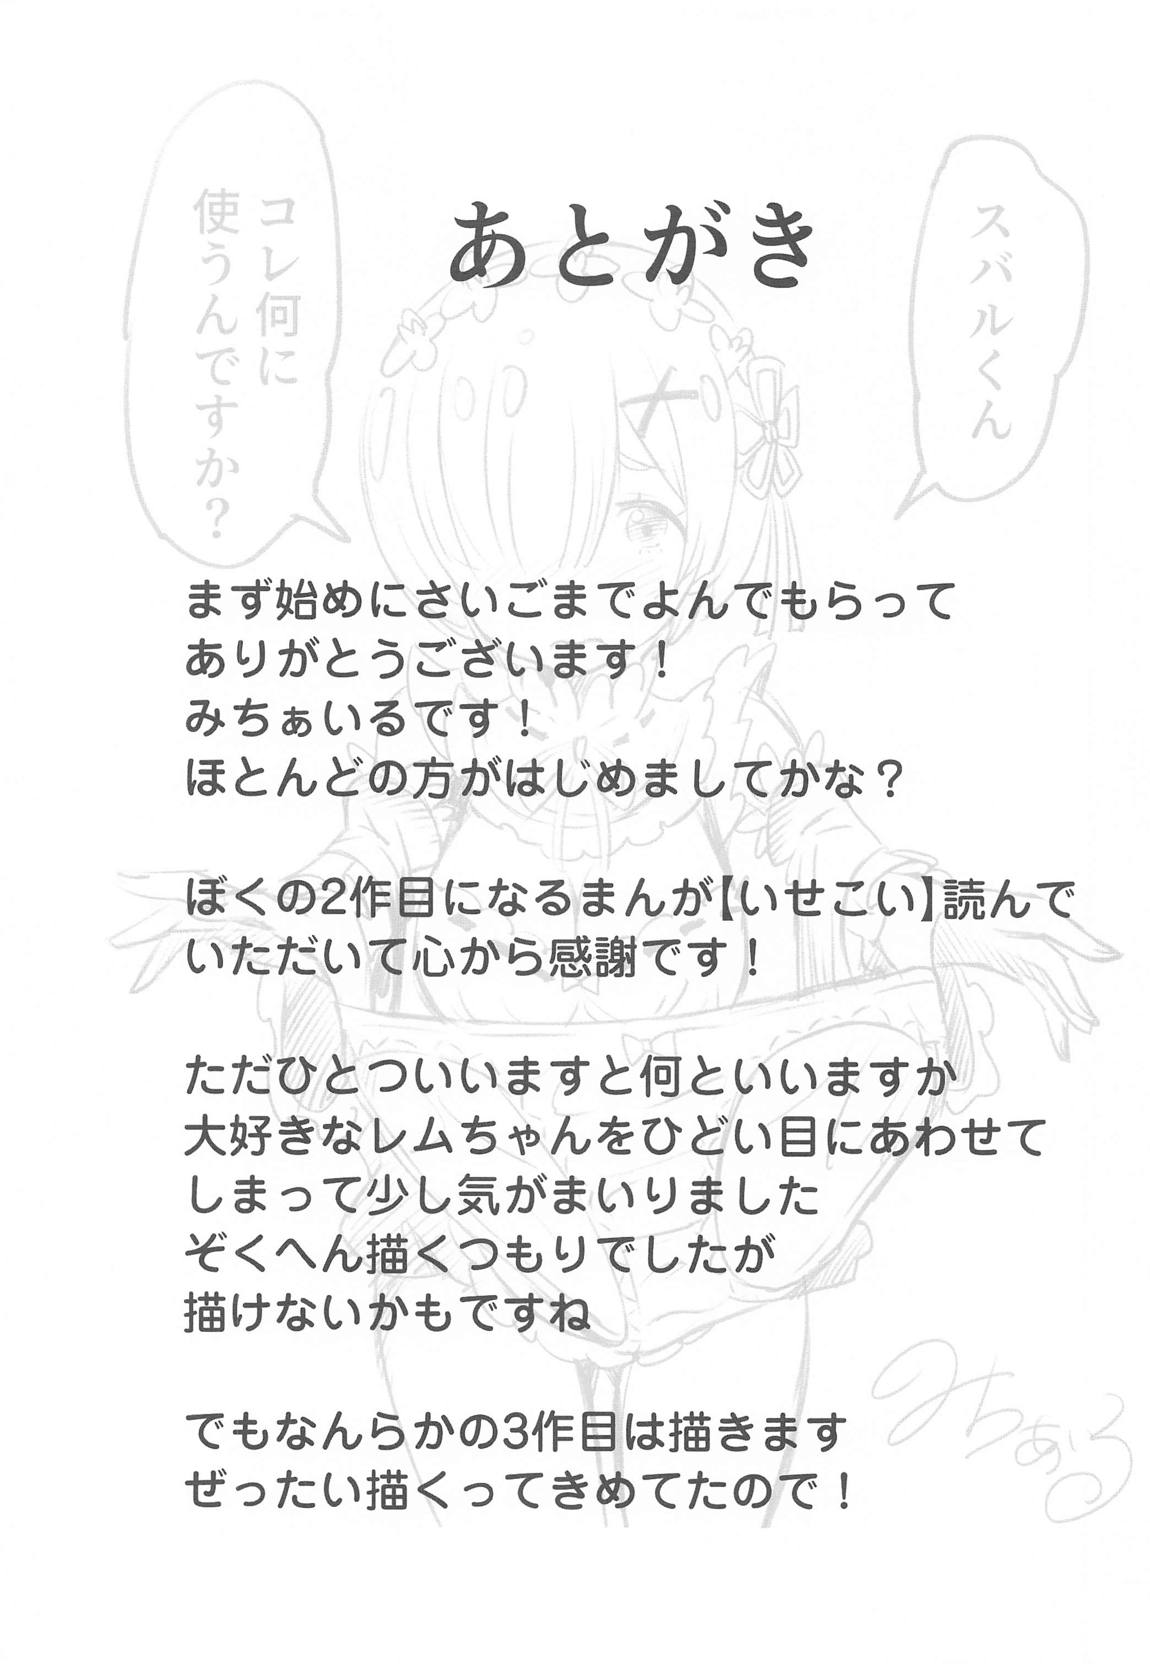 あとがき
スバルくん
コレ何に
使うんですか？
まず始めにさいごまでよんでもらって
ありがとうございます！
みちぁいるです！
ほとんどの方がはじめましてかな？
ぼくの2作目になるまんが【いせこい】読んで
いただいて心から感謝です！
ただひとついいますと何といいますか
大好きなレムちゃんをひどい目にあわせて
しまって少し気がまいりました
ぞくへん描くつもりでしたが
描けないかもですね
でもなんらかの3作目は描きます
ぜったい描くってきめてたので！
みちぁいる